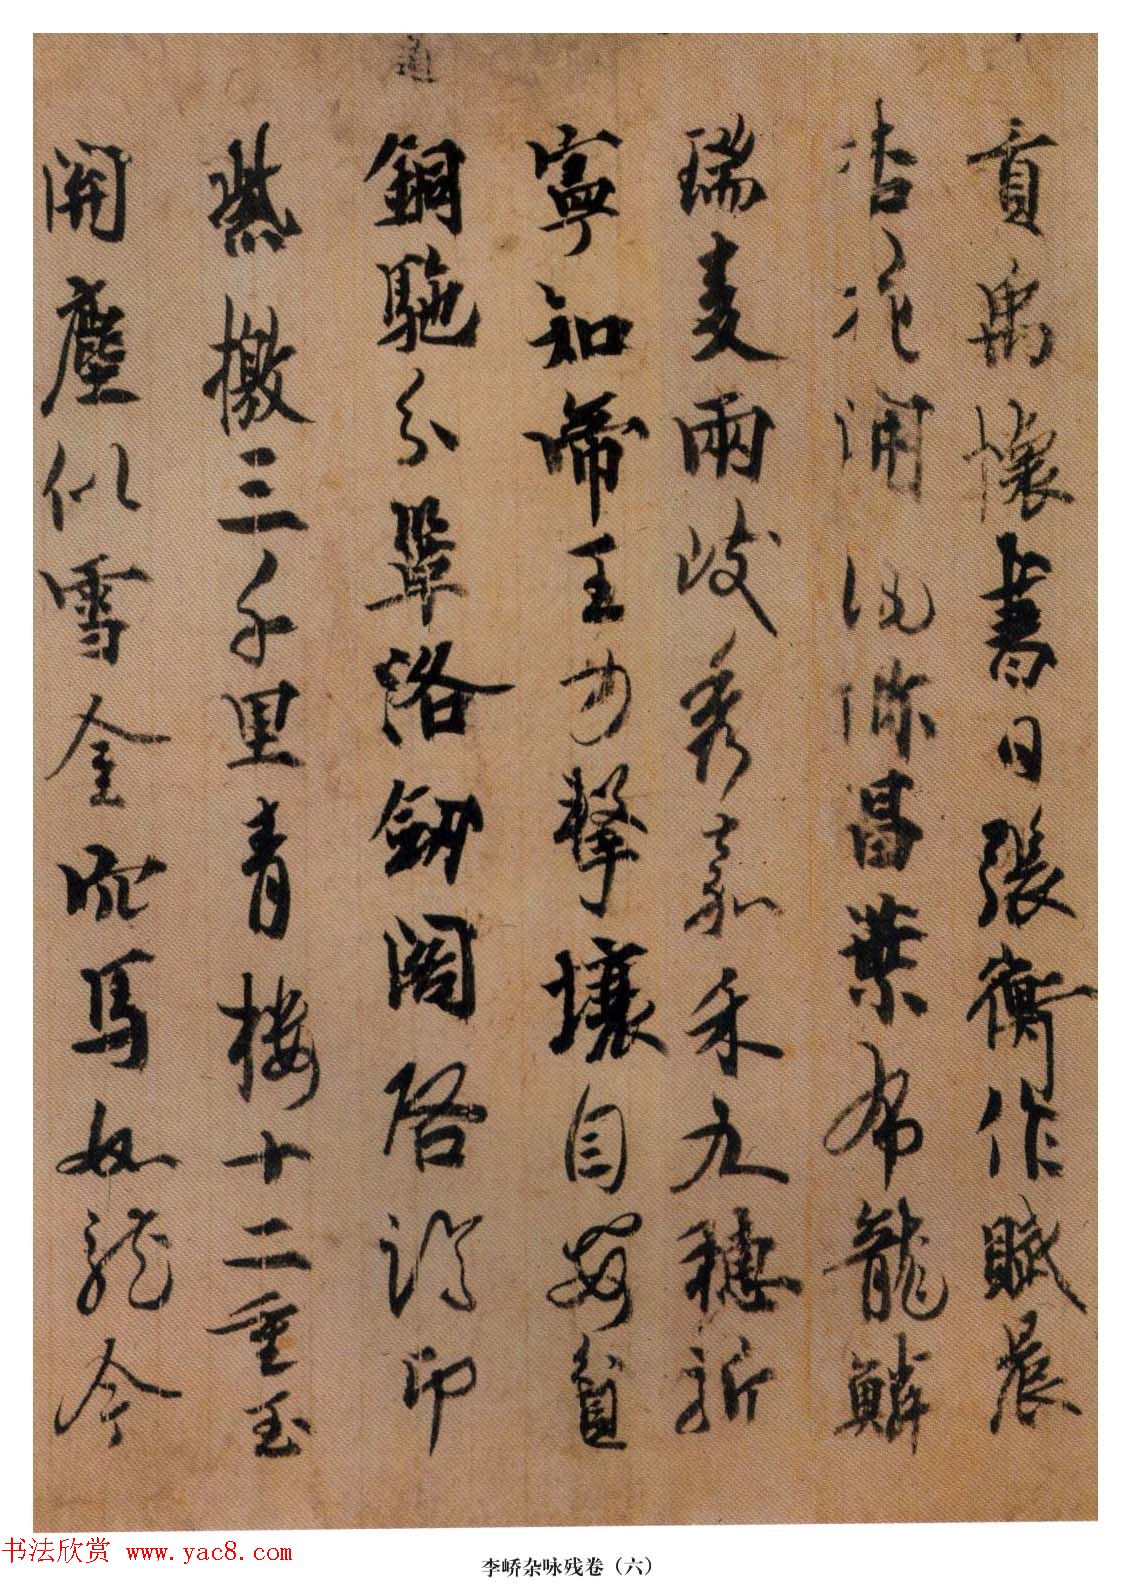 貢禹懷書日張衡作賦晨
杏花開鳳軫昌葉布龍鱗
瑞麥兩岐秀嘉禾九穗新
寧知帝王力擊壤自安貧
銅馳分鞏洛劒閣啓臨邛
紫檄三千里青樓十二重玉
關塵似雪金穴馬如龍今
道
书法欣赏 www.yac8.com
李峤杂咏残卷（六）